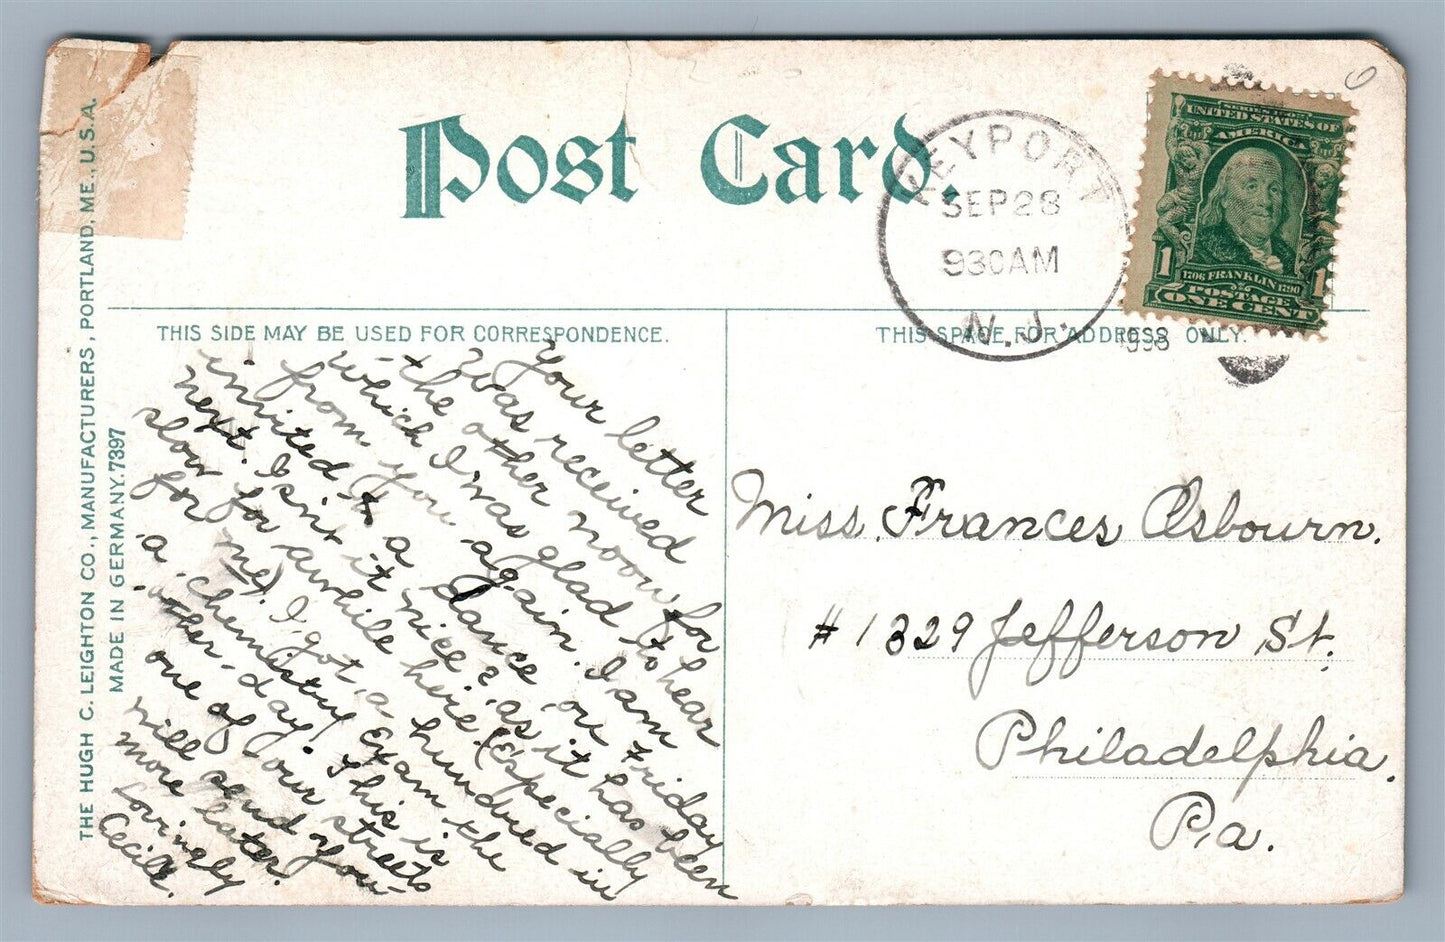 Post Card.
KEYPORT
SEP 28
930 AM
N.J.
SERIES 1902
UNITED STATES OF
AMERICA
1706 FRANKLIN 1790
POSTAGE
1 ONE CENT 1
THIS SIDE MAY BE USED FOR CORRESPONDENCE.
THIS SPACE FOR ADDRESS ONLY.
THE HUGH C. LEIGHTON CO., MANUFACTURERS, PORTLAND, ME., U.S.A.
MADE IN GERMANY. 7397
Your letter
was received
the other noon for
which I was glad to hear
from you again. I am
invited to a dance on Friday
next. Isn't it nice? as it has been
slow for awhile here. (Especially
for me). I got a hundred in
a chemistry Exam the
other day! This is
one of our streets
will send you
more later.
Lovingly
Cecile.
Miss. Frances Osbourn.
# 1329 Jefferson St.
Philadelphia.
Pa.